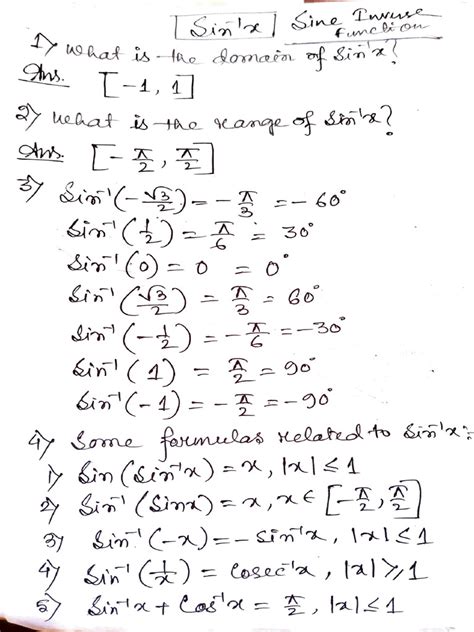 Sin⁻¹x Sine Inverse Function
1) What is the domain of Sin⁻¹x?
Ans. [-1, 1]
2) What is the range of Sin⁻¹x?
Ans. [-π/2, π/2]
3) Sin⁻¹(-√3/2) = -π/3 = -60°
Sin⁻¹(1/2) = π/6 = 30°
Sin⁻¹(0) = 0 = 0°
Sin⁻¹(√3/2) = π/3 = 60°
Sin⁻¹(-1/2) = -π/6 = -30°
Sin⁻¹(1) = π/2 = 90°
Sin⁻¹(-1) = -π/2 = -90°
4) Some formulas related to Sin⁻¹x:-
1) Sin(Sin⁻¹x) = x, |x| ≤ 1
2) Sin⁻¹(Sinx) = x, x ∈ [-π/2, π/2]
3) Sin⁻¹(-x) = -Sin⁻¹x, |x| ≤ 1
4) Sin⁻¹(1/x) = Cosec⁻¹x, |x| ≥ 1
5) Sin⁻¹x + Cos⁻¹x = π/2, |x| ≤ 1